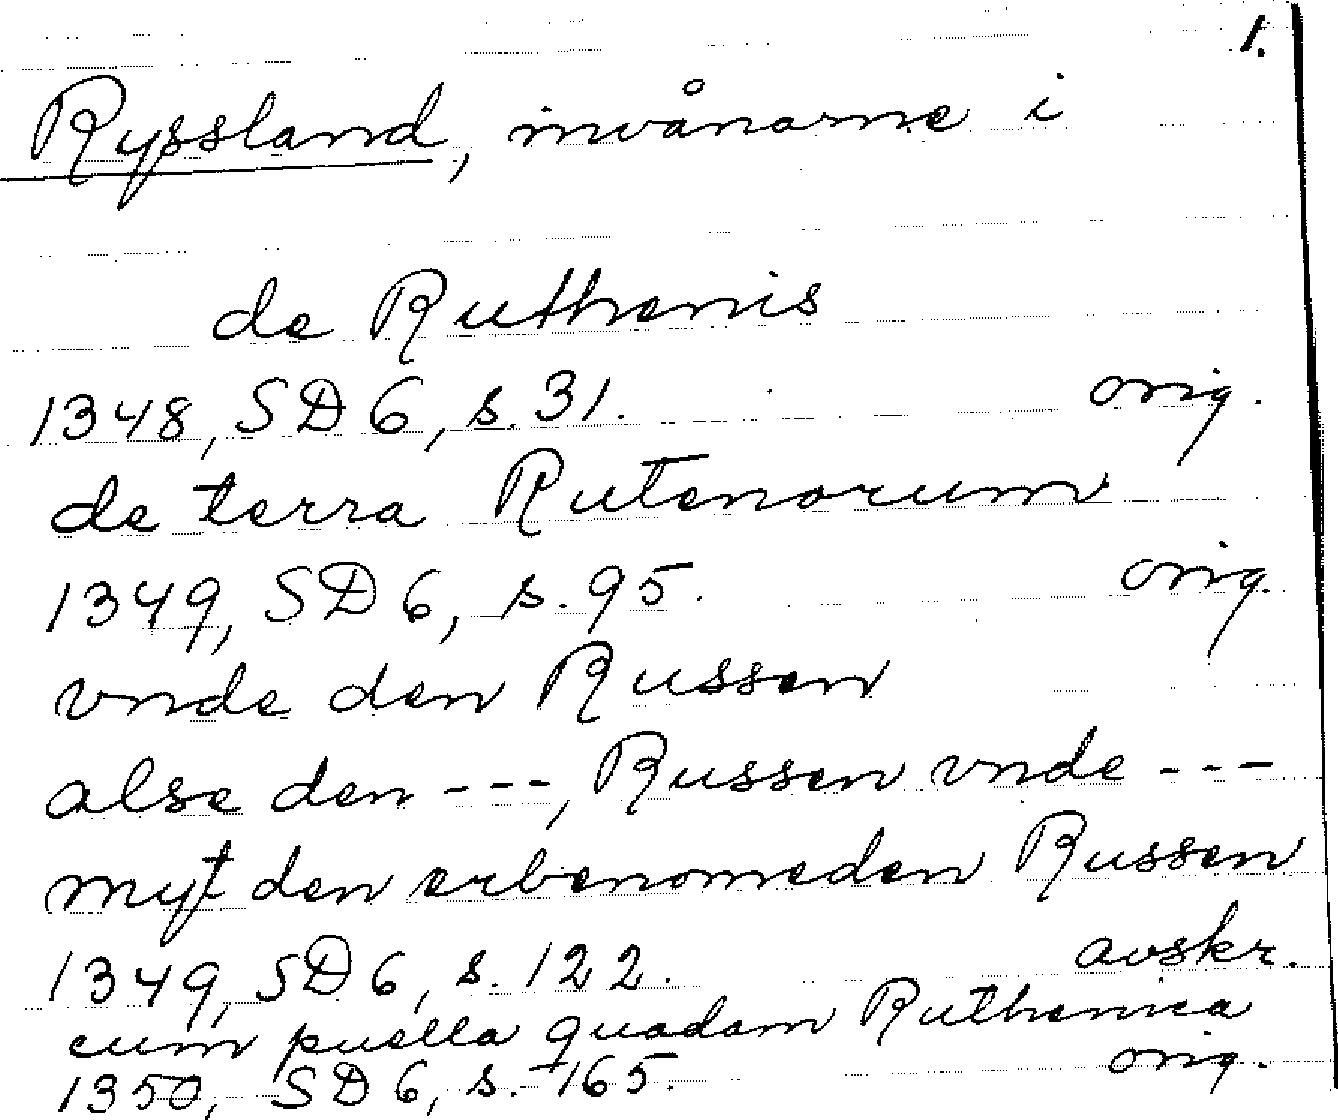 1.
Ryssland, invånarne i
de Ruthenis
1348, SD 6, s. 31. orig.
de terra Rutenorum
1349, SD 6, s. 95. orig.
vnde den Russen
alse den ---, Russen vnde ---
myt den erbenomeden Russen
1349, SD 6, s. 122. avskr.
cum puella quadam Ruthenica
1350, SD 6, s. 165. orig.